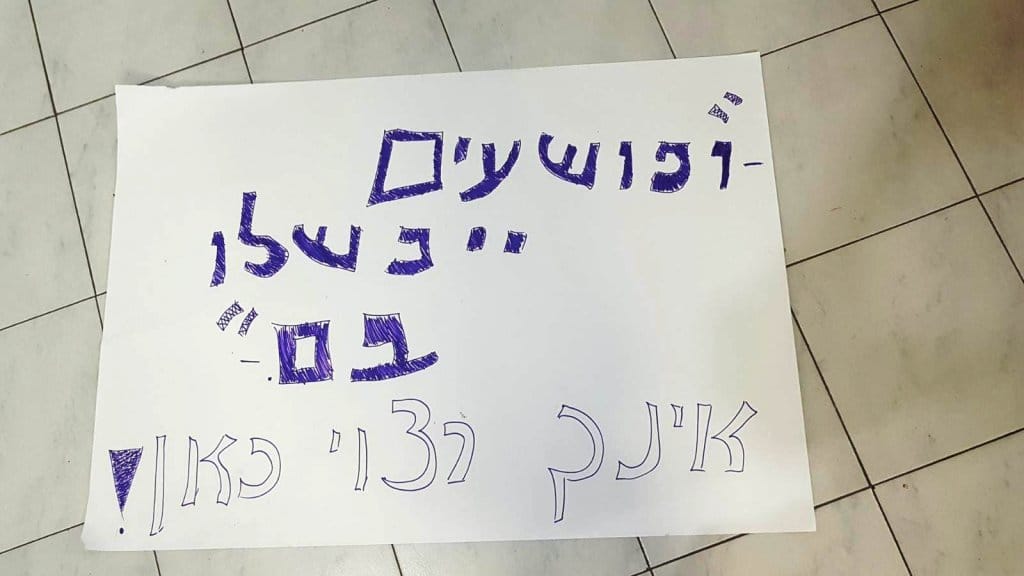 -"ופושעים
ייכשלו
בם."-
אינך רצוי כאן!